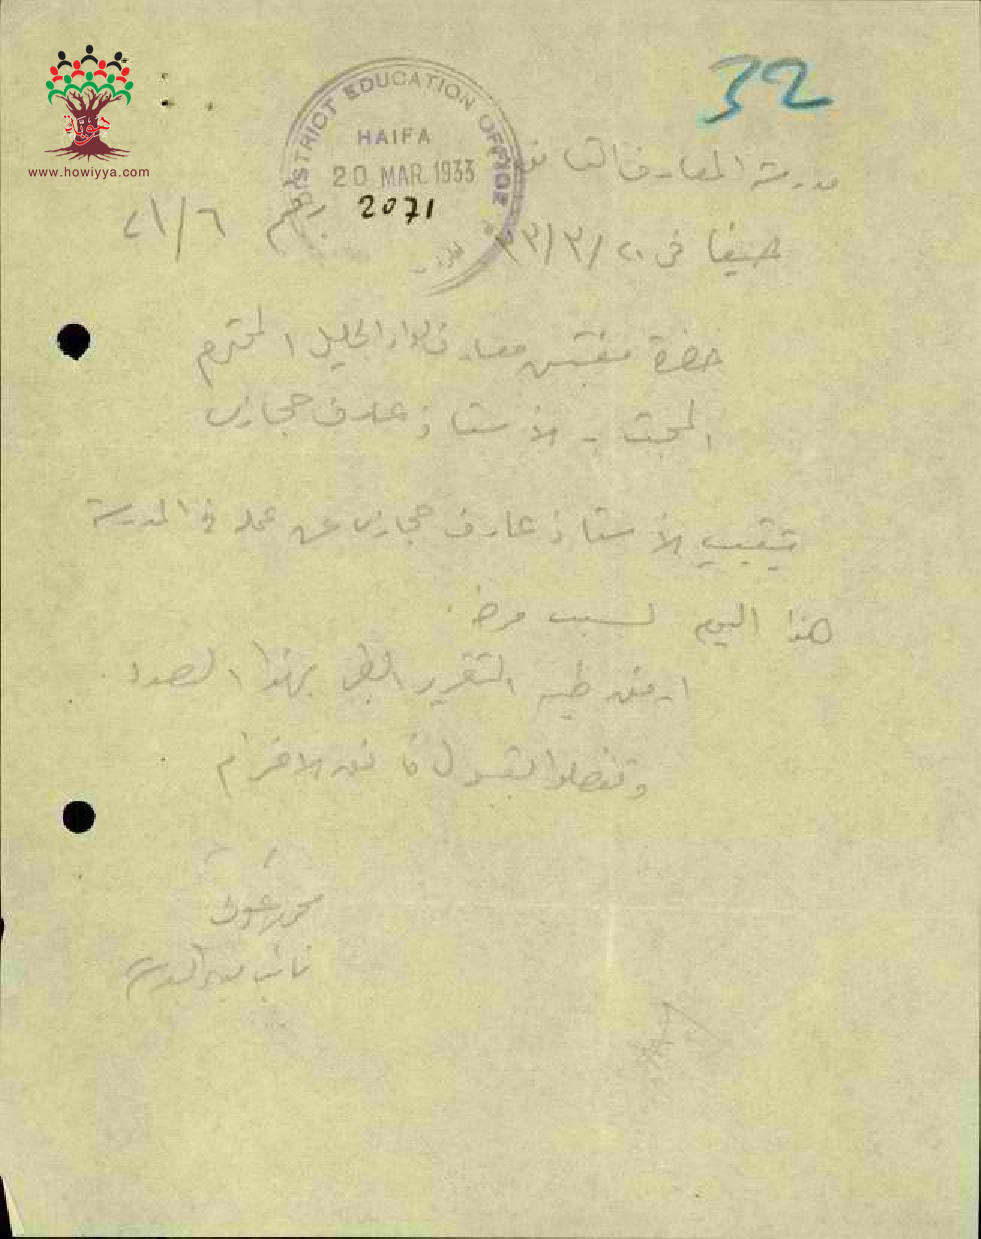 32
هوية
www.howiyya.com
DISTRICT EDUCATION OFFICE
HAIFA
20 MAR. 1933
2071
مدرسة المعارف الثانوية
حيفا في ٢٠/٣/٣٣
رقم ٦/٢١
حضرة مفتش معارف لواء الجليل المحترم
المبحث - الأستاذ عارف حجازي
تغيب الأستاذ عارف حجازي عن عمله في المدرسة
هذا اليوم لسبب مرضه.
ارفق طيه التقرير الطبي بهذا الصدد.
وتفضلوا بقبول فائق الاحترام
نائب مدير المدرسة